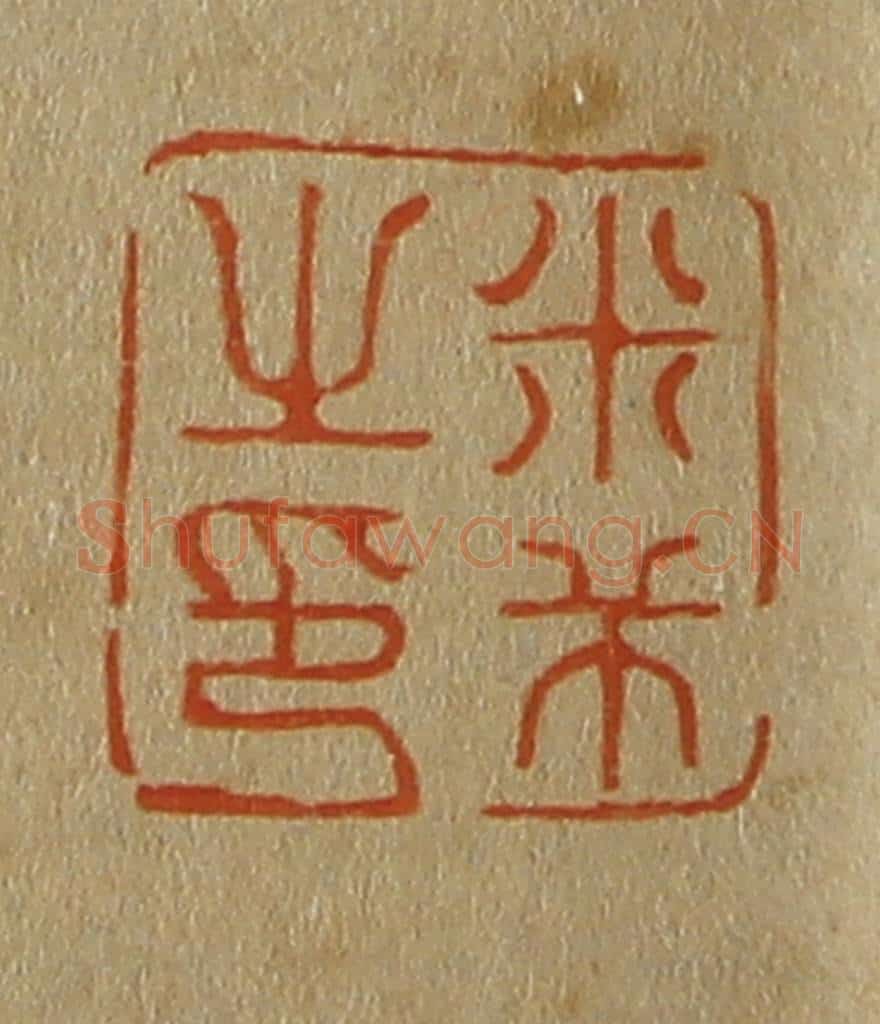 米芾
之印
Shufawang.CN